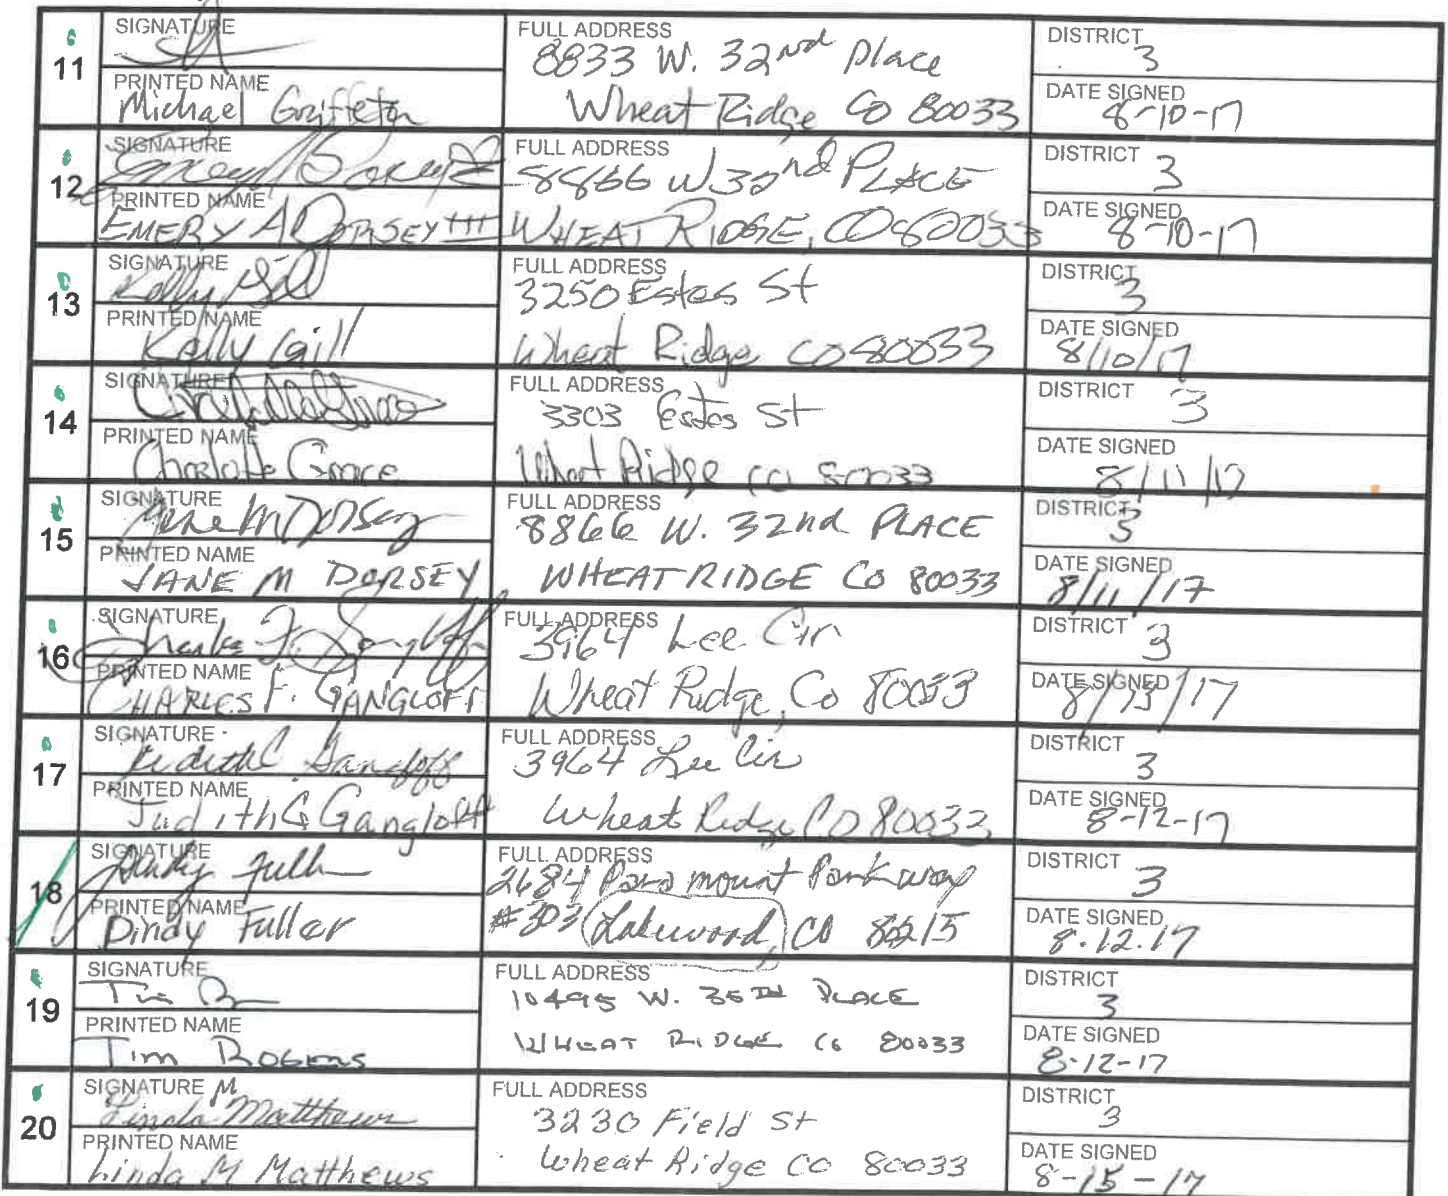 11
SIGNATURE
PRINTED NAME
Michael Griffeton
FULL ADDRESS
8833 W. 32nd Place
Wheat Ridge Co 80033
DISTRICT
3
DATE SIGNED
8-10-17
12
SIGNATURE
PRINTED NAME
EMERY A DORSEY III
FULL ADDRESS
8866 W 32nd PLACE
WHEAT RIDGE, CO 80033
DISTRICT 3
DATE SIGNED
8-10-17
13
SIGNATURE
Kelly Gill
PRINTED NAME
Kelly Gill
FULL ADDRESS
3250 Estes St
Wheat Ridge CO 80033
DISTRICT
3
DATE SIGNED
8/10/17
14
SIGNATURE
PRINTED NAME
Charlotte Grace
FULL ADDRESS
3303 Estes St
Wheat Ridge CO 80033
DISTRICT
3
DATE SIGNED
8/11/17
15
SIGNATURE
Jane M Dorsey
PRINTED NAME
JANE M DORSEY
FULL ADDRESS
8866 W. 32nd PLACE
WHEAT RIDGE CO 80033
DISTRICT
3
DATE SIGNED
8/11/17
16
SIGNATURE
Charles F. Gangloff
PRINTED NAME
CHARLES F. GANGLOFF
FULL ADDRESS
3964 Lee Cir
Wheat Ridge, Co 80033
DISTRICT
3
DATE SIGNED
8/13/17
17
SIGNATURE
Judith C Gangloff
PRINTED NAME
Judith G Gangloff
FULL ADDRESS
3964 Lee Cir
Wheat Ridge CO 80033
DISTRICT
3
DATE SIGNED
8-12-17
18
SIGNATURE
Dindy Fuller
PRINTED NAME
Dindy Fuller
FULL ADDRESS
2684 Paramount Parkway
#303 Lakewood, CO 80215
DISTRICT
3
DATE SIGNED
8.12.17
19
SIGNATURE
PRINTED NAME
Tim Rogers
FULL ADDRESS
10495 W. 35TH PLACE
WHEAT RIDGE CO 80033
DISTRICT
3
DATE SIGNED
8-12-17
20
SIGNATURE
Linda M Matthews
PRINTED NAME
Linda M Matthews
FULL ADDRESS
3230 Field St
Wheat Ridge CO 80033
DISTRICT
3
DATE SIGNED
8-15-17